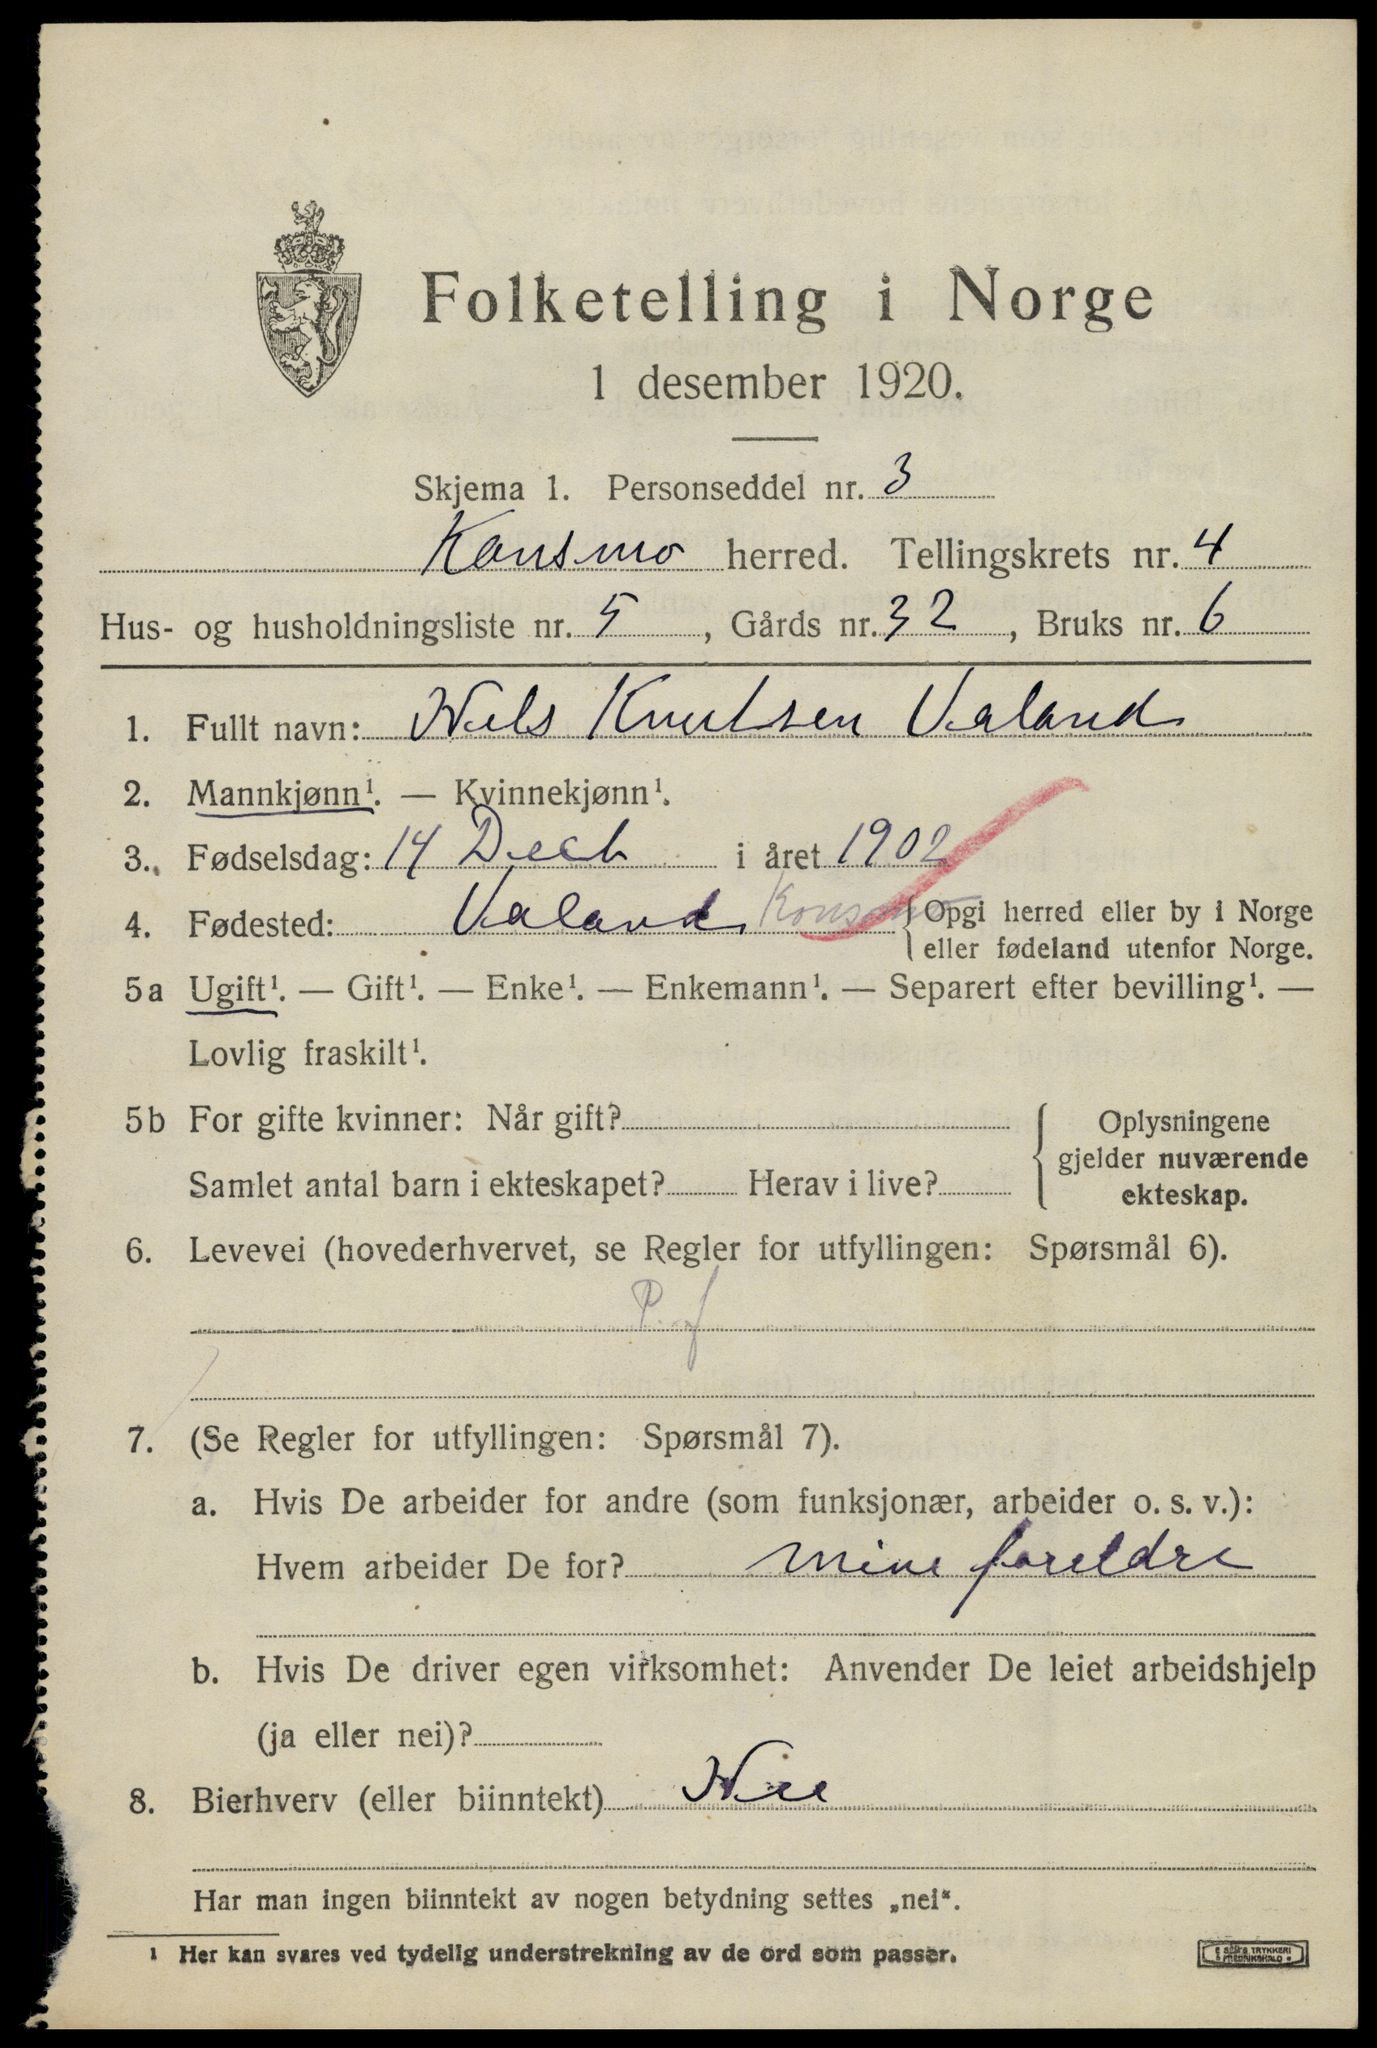 Folketelling i Norge
1 desember 1920.
Skjema 1. Personseddel nr. 3
Konsmo herred. Tellingskrets nr. 4
Hus- og husholdningsliste nr. 5, Gårds nr. 32, Bruks nr. 6
1. Fullt navn: Nels Knutsen Valand
2. Mannkjønn¹. — Kvinnekjønn¹.
3. Fødselsdag: 14 Decb i året 1902
4. Fødested: Valand Konsmo {Opgi herred eller by i Norge
eller fødeland utenfor Norge.
5a Ugift¹. — Gift¹. — Enke¹. — Enkemann¹. — Separert efter bevilling¹. —
Lovlig fraskilt¹.
5b For gifte kvinner: Når gift?
Samlet antal barn i ekteskapet? Herav i live?
Oplysningene
gjelder nuværende
ekteskap.
6. Levevei (hovederhvervet, se Regler for utfyllingen: Spørsmål 6).
P. f
7. (Se Regler for utfyllingen: Spørsmål 7).
a. Hvis De arbeider for andre (som funksjonær, arbeider o. s. v.):
Hvem arbeider De for? mine foreldre
b. Hvis De driver egen virksomhet: Anvender De leiet arbeidshjelp
(ja eller nei)?
8. Bierhverv (eller biinntekt) Nei
Har man ingen biinntekt av nogen betydning settes „nei“.
1 Her kan svares ved tydelig understrekning av de ord som passer.